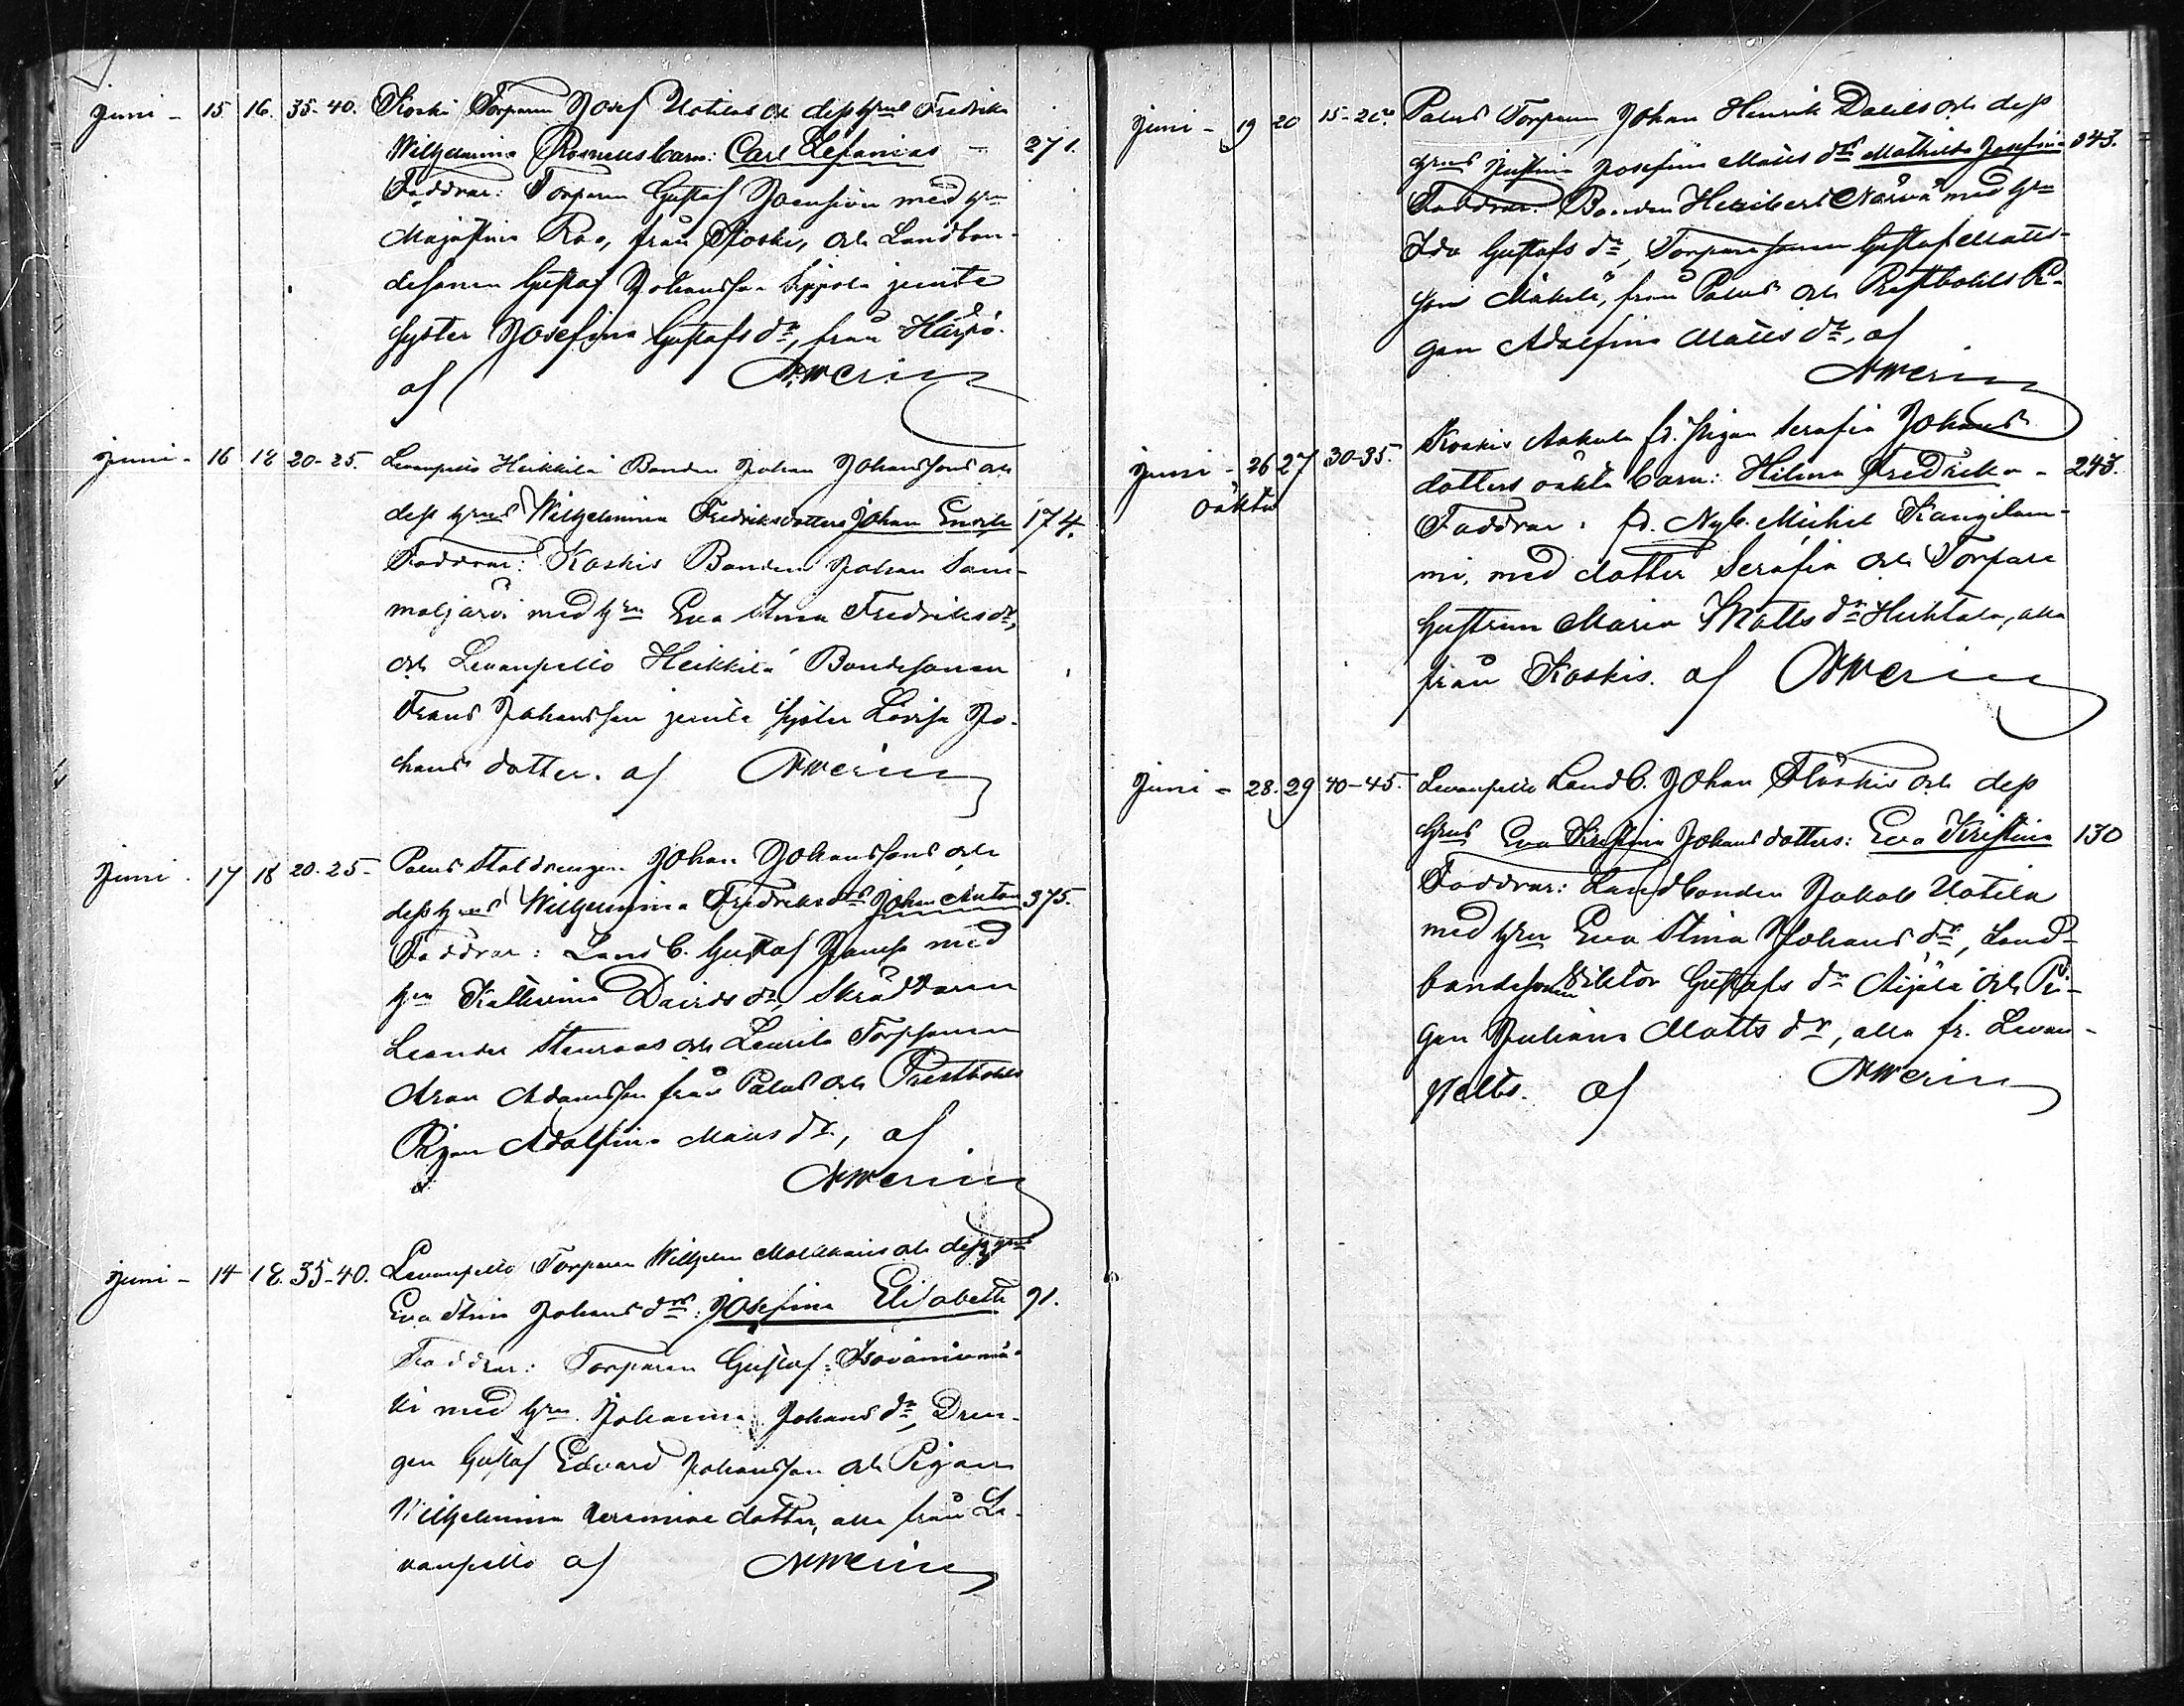 Juni - 15 16. 35-40. Koski Torparen Josef Uotilas och dess hus Fredrika
Wilhelmina Rosnells barn: Carl Lefanias - 271.
Faddrar: Torparen Gustaf med hn
Maja Stina Roo, från Koski, och Landbon-
desonen Gustaf Johansson Seppälä jemte
syster Josefina Gustafs dr, från Härjö.
af
Juni - 16 18 20-25. Levanpelto Heikkilä Bonden Johan Johanssons och
dess hrus Wilhelmina Fredriksdotters Johan 174.
Faddrar: Koskis Bonden Johan Sam-
maljärvi med hrn Eva Stina Fredriks dr,
och Levanpelto Heikkilä Bondesonen
Frans Johansson jemte syster Lovisa Jo-
hans dotter. af
Juni - 17 18 20-25- Palus Staldrengen Johan Johanssons och
dess hrus Wilhelmina Fredriks drs Johan Anton 375.
Faddrar: Landb. Gustaf med
hn Katherina Davids dr, Skräddaren
Leander Stenroos och Laurila Torpsonen
Aron Adamsson från Palus och Prestbohls
Pigan Adolfina Matts dr, af
Juni - 14 18. 35-40. Levanpelto Torparen Wilhelm och dess hrus
Eva Stina Johans drs: Josefina Elisabeth 91.
Faddrar: Torparen Gustaf Isovainiomä-
ki med hrn Johanna Johans dr, Dren-
gen Gustaf Edvard Johansson och Pigan
Wilhelmina Jeremiae dotter, alla från Le-
vanpelto af
Juni - 19 20 15-20. Palus Torparen Johan Henrik Davids och dess
hrus Justina Josefina Matts drs Mathilda Josefina 343.
Faddrar: Bonden Heribert Närvä med hrn
Ida Gustafs dr, Torpare sonen Gustaf Matts-
son Mäkelä, från Palus och Prestbohls Pi-
gan Adolfina Matts dr, af
Juni - 26 27 30-35. Koskis Aakula fd. pigan Serafia Johans
oäkta dotters oäkta barn: Hilma Fredrika - 243.
Faddrar: fd. Nyb. Michel Kangilam-
mi, med dotter Serafia och Torpare
hustrun Maria Matts dr Huhtala, alla
från Koskis. af
Juni - 28. 29 40-45. Levanpelto Landb. Johan Flöskis och dess
hrus Eva Kristina Johans dotters: Eva Kristina 130
Faddrar: Landbonden Jakob Uotila
med hrn Eva Stina Johans dr, Land-
bondesonen Viktor Gustafs dr Äijälä och Pi-
gan Juliana Matts dr, alla fr. Levan-
pelto. af